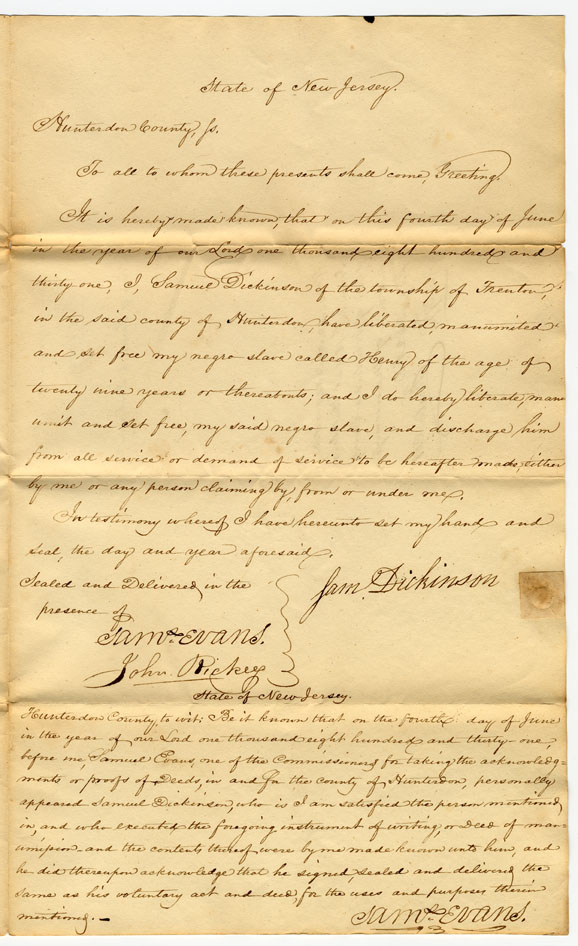 State of New Jersey.
Hunterdon County, ss.
To all to whom these presents shall come, Greeting.
It is hereby made known, that on this fourth day of June
in the year of our Lord one thousand eight hundred and
thirty one, I, Samuel Dickinson of the township of Trenton,
in the said county of Hunterdon, have liberated, manumited
and set free my negro slave called Henry of the age of
twenty nine years or thereabouts; and I do hereby liberate, man-
umit and set free, my said negro slave, and discharge him
from all service or demand of service to be hereafter made, either
by me or any person claiming by, from or under me.
In testimony whereof I have hereunto set my hand and
seal, the day and year aforesaid.
Sealed and Delivered in the
presence of
Sam. Dickinson
Saml. Evans.
John Rickey
State of New Jersey.
Hunterdon County, to wit; Be it known that on the fourth day of June
in the year of our Lord one thousand eight hundred and thirty-one,
before me, Samuel Evans, one of the Commissioners for taking the acknowledg-
ments or proofs of Deeds, in and for the county of Hunterdon, personally
appeared Samuel Dickinson, who is I am satisfied the person mentioned
in, and who executed the foregoing instrument of writing, or deed of man-
umission - and the contents thereof were by me made known unto him, and
he did thereupon acknowledge that he signed, sealed and delivered the
same as his voluntary act and deed, for the uses and purposes therein
mentioned. —
Saml. Evans.